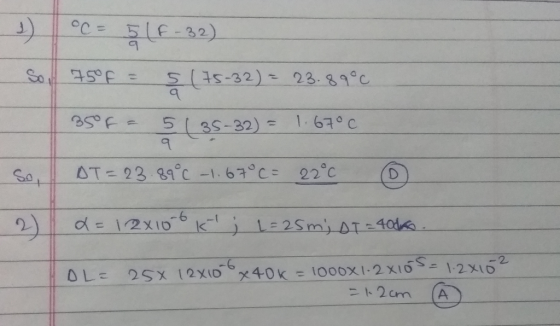 1) °C = 5/9 (F - 32)
So, 75°F = 5/9 (75-32) = 23.89°C
35°F = 5/9 (35-32) = 1.67°C
So, ΔT = 23.89°C - 1.67°C = 22°C (D)
2) α = 12×10⁻⁶ K⁻¹ ; L = 25m ; ΔT = 40
ΔL = 25 × 12×10⁻⁶ × 40K = 1000×1.2×10⁻⁵ = 1.2×10⁻²
= 1.2cm (A)